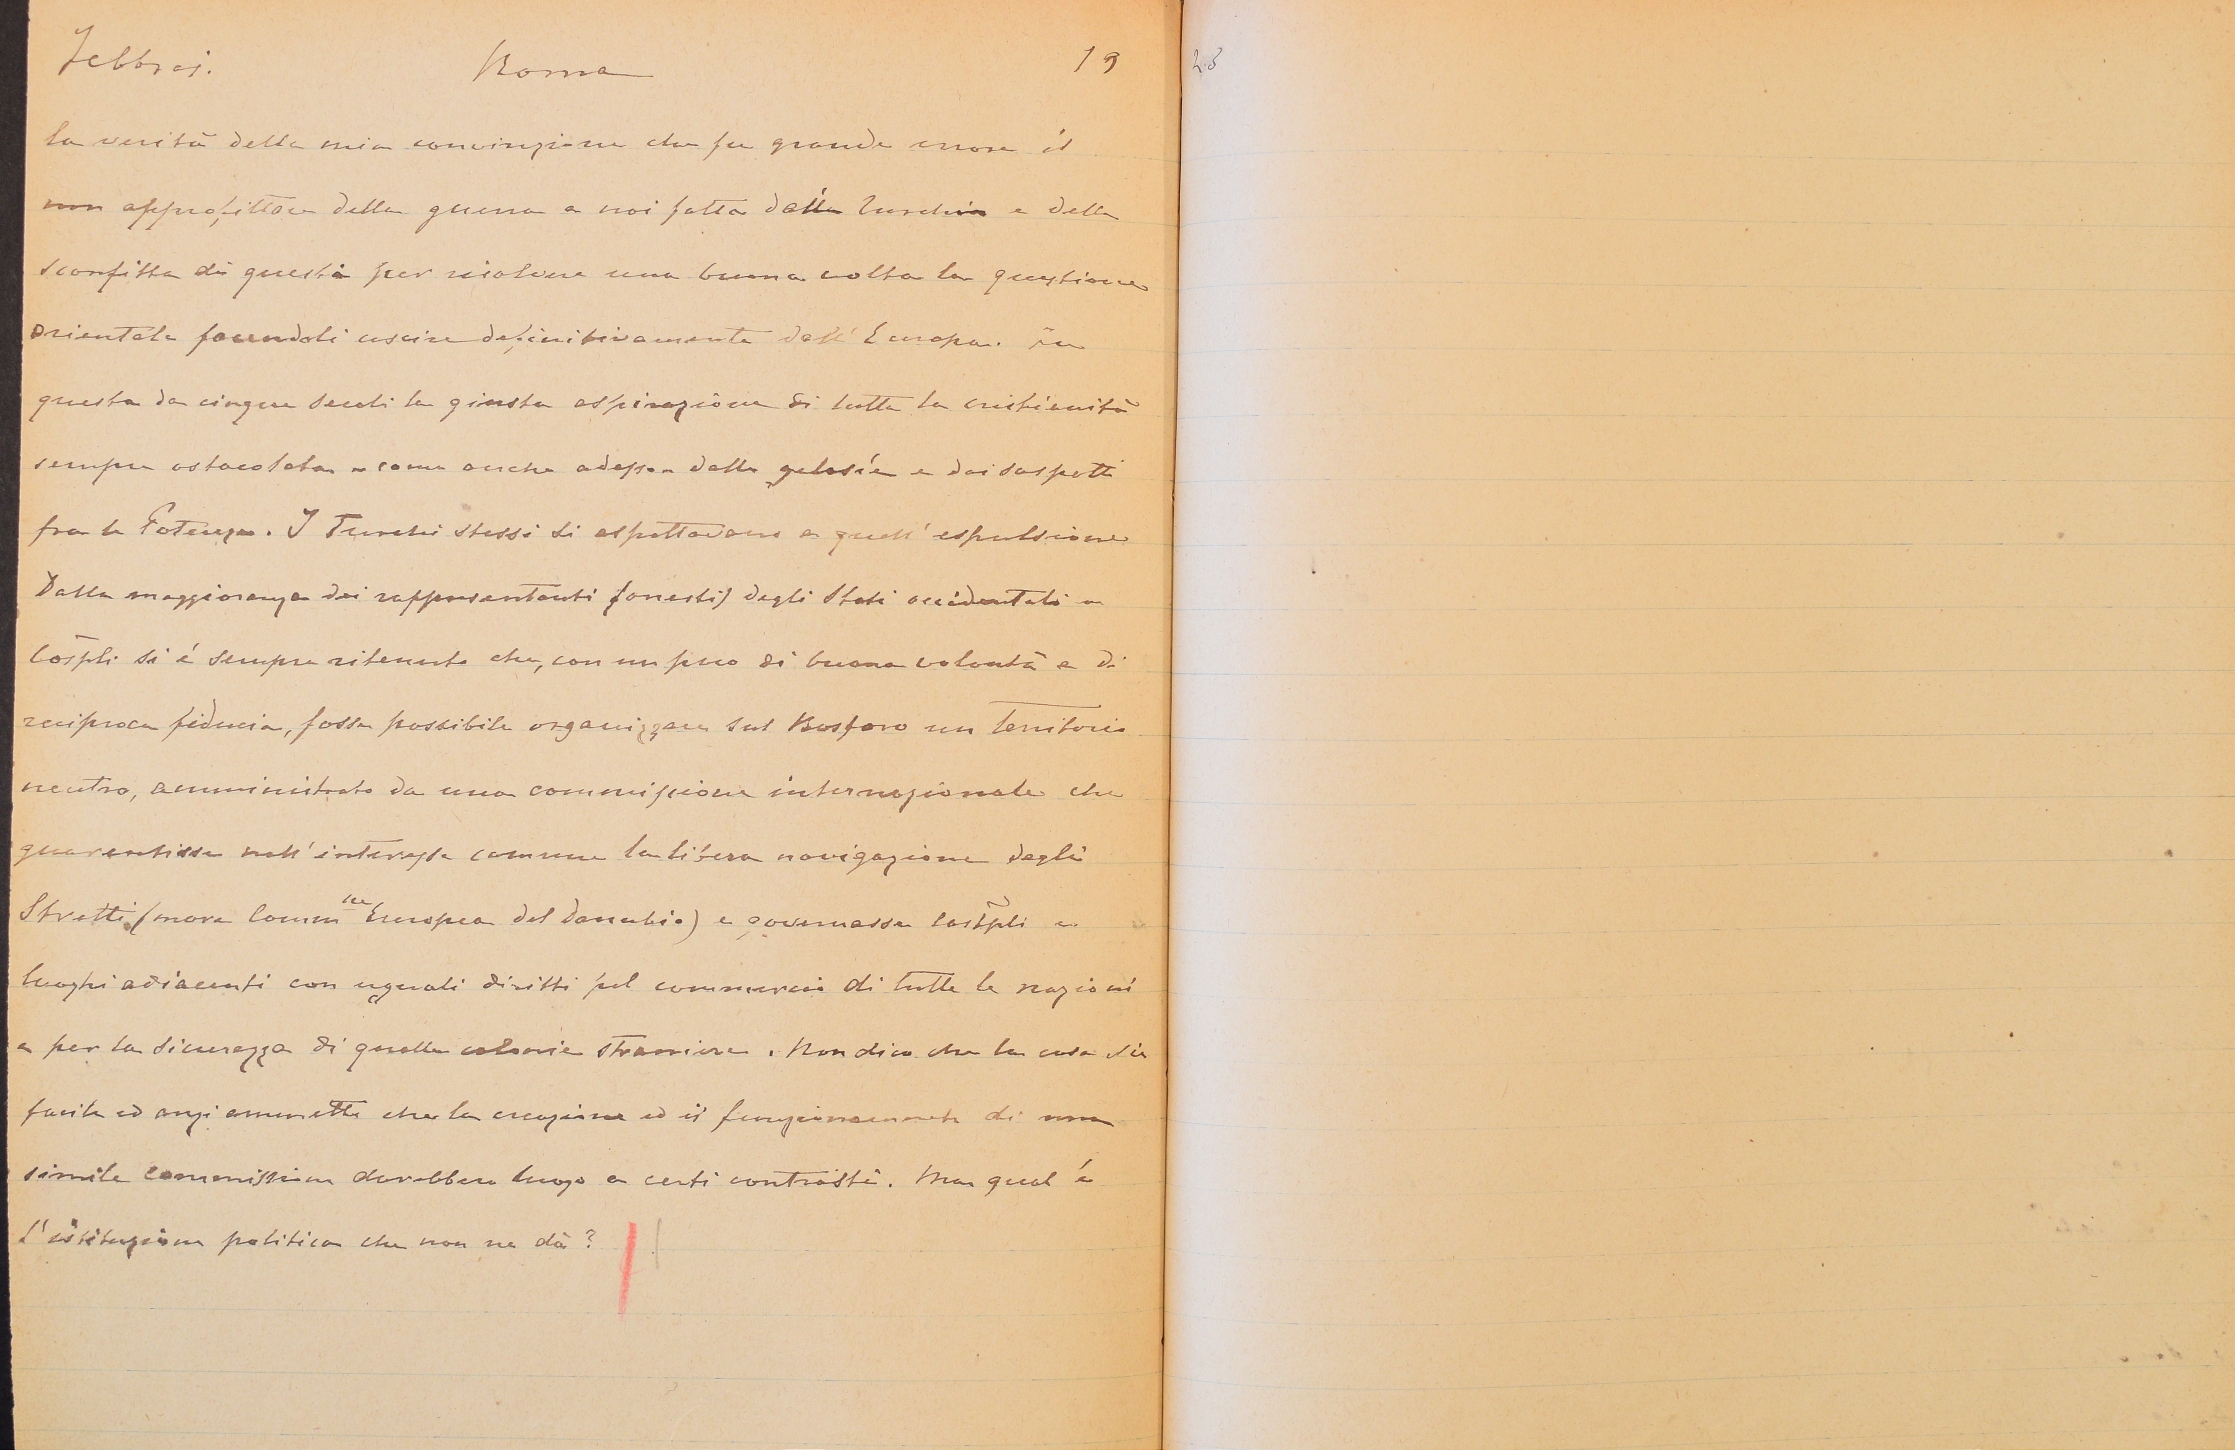 Febbrai. Roma 19
la verità della mia convinzione che fu grande errore il
non approfittare della guerra a noi fatta dalla Turchia e della
sconfitta di questa per risolvere una buona volta la questione
orientale facendoli uscire definitivamente dall'Europa. Fu
questa da cinque secoli la giusta aspirazione di tutta la cristianità
sempre ostacolata come anche adesso dalle gelosie e dai sospetti
fra le Potenze. I Turchi stessi si aspettavano a quell'espulsione
Dalla maggioranza dei rappresentanti (onesti) degli Stati occidentali a
Cospli si è sempre ritenuto che, con un poco di buona volontà e di
reciproca fiducia, fosse possibile organizzare sul Bosforo un territorio
neutro, amministrato da una commissione internazionale che
guarentisse nell'interesse comune la libera navigazione degli
Stretti (more Comm ne Europea del Danubio) e governasse Costpli e
luoghi adiacenti con uguali diritti pel commercio di tutte le nazioni
e per la sicurezza di quelle colonie straniere. Non dico che la cosa sia
facile ed anzi ammetto che la creazione ed il funzionamento di una
simile commissione darebbero luogo a certi contrasti. Ma qual è
l'istituzione politica che non ne dà?
28